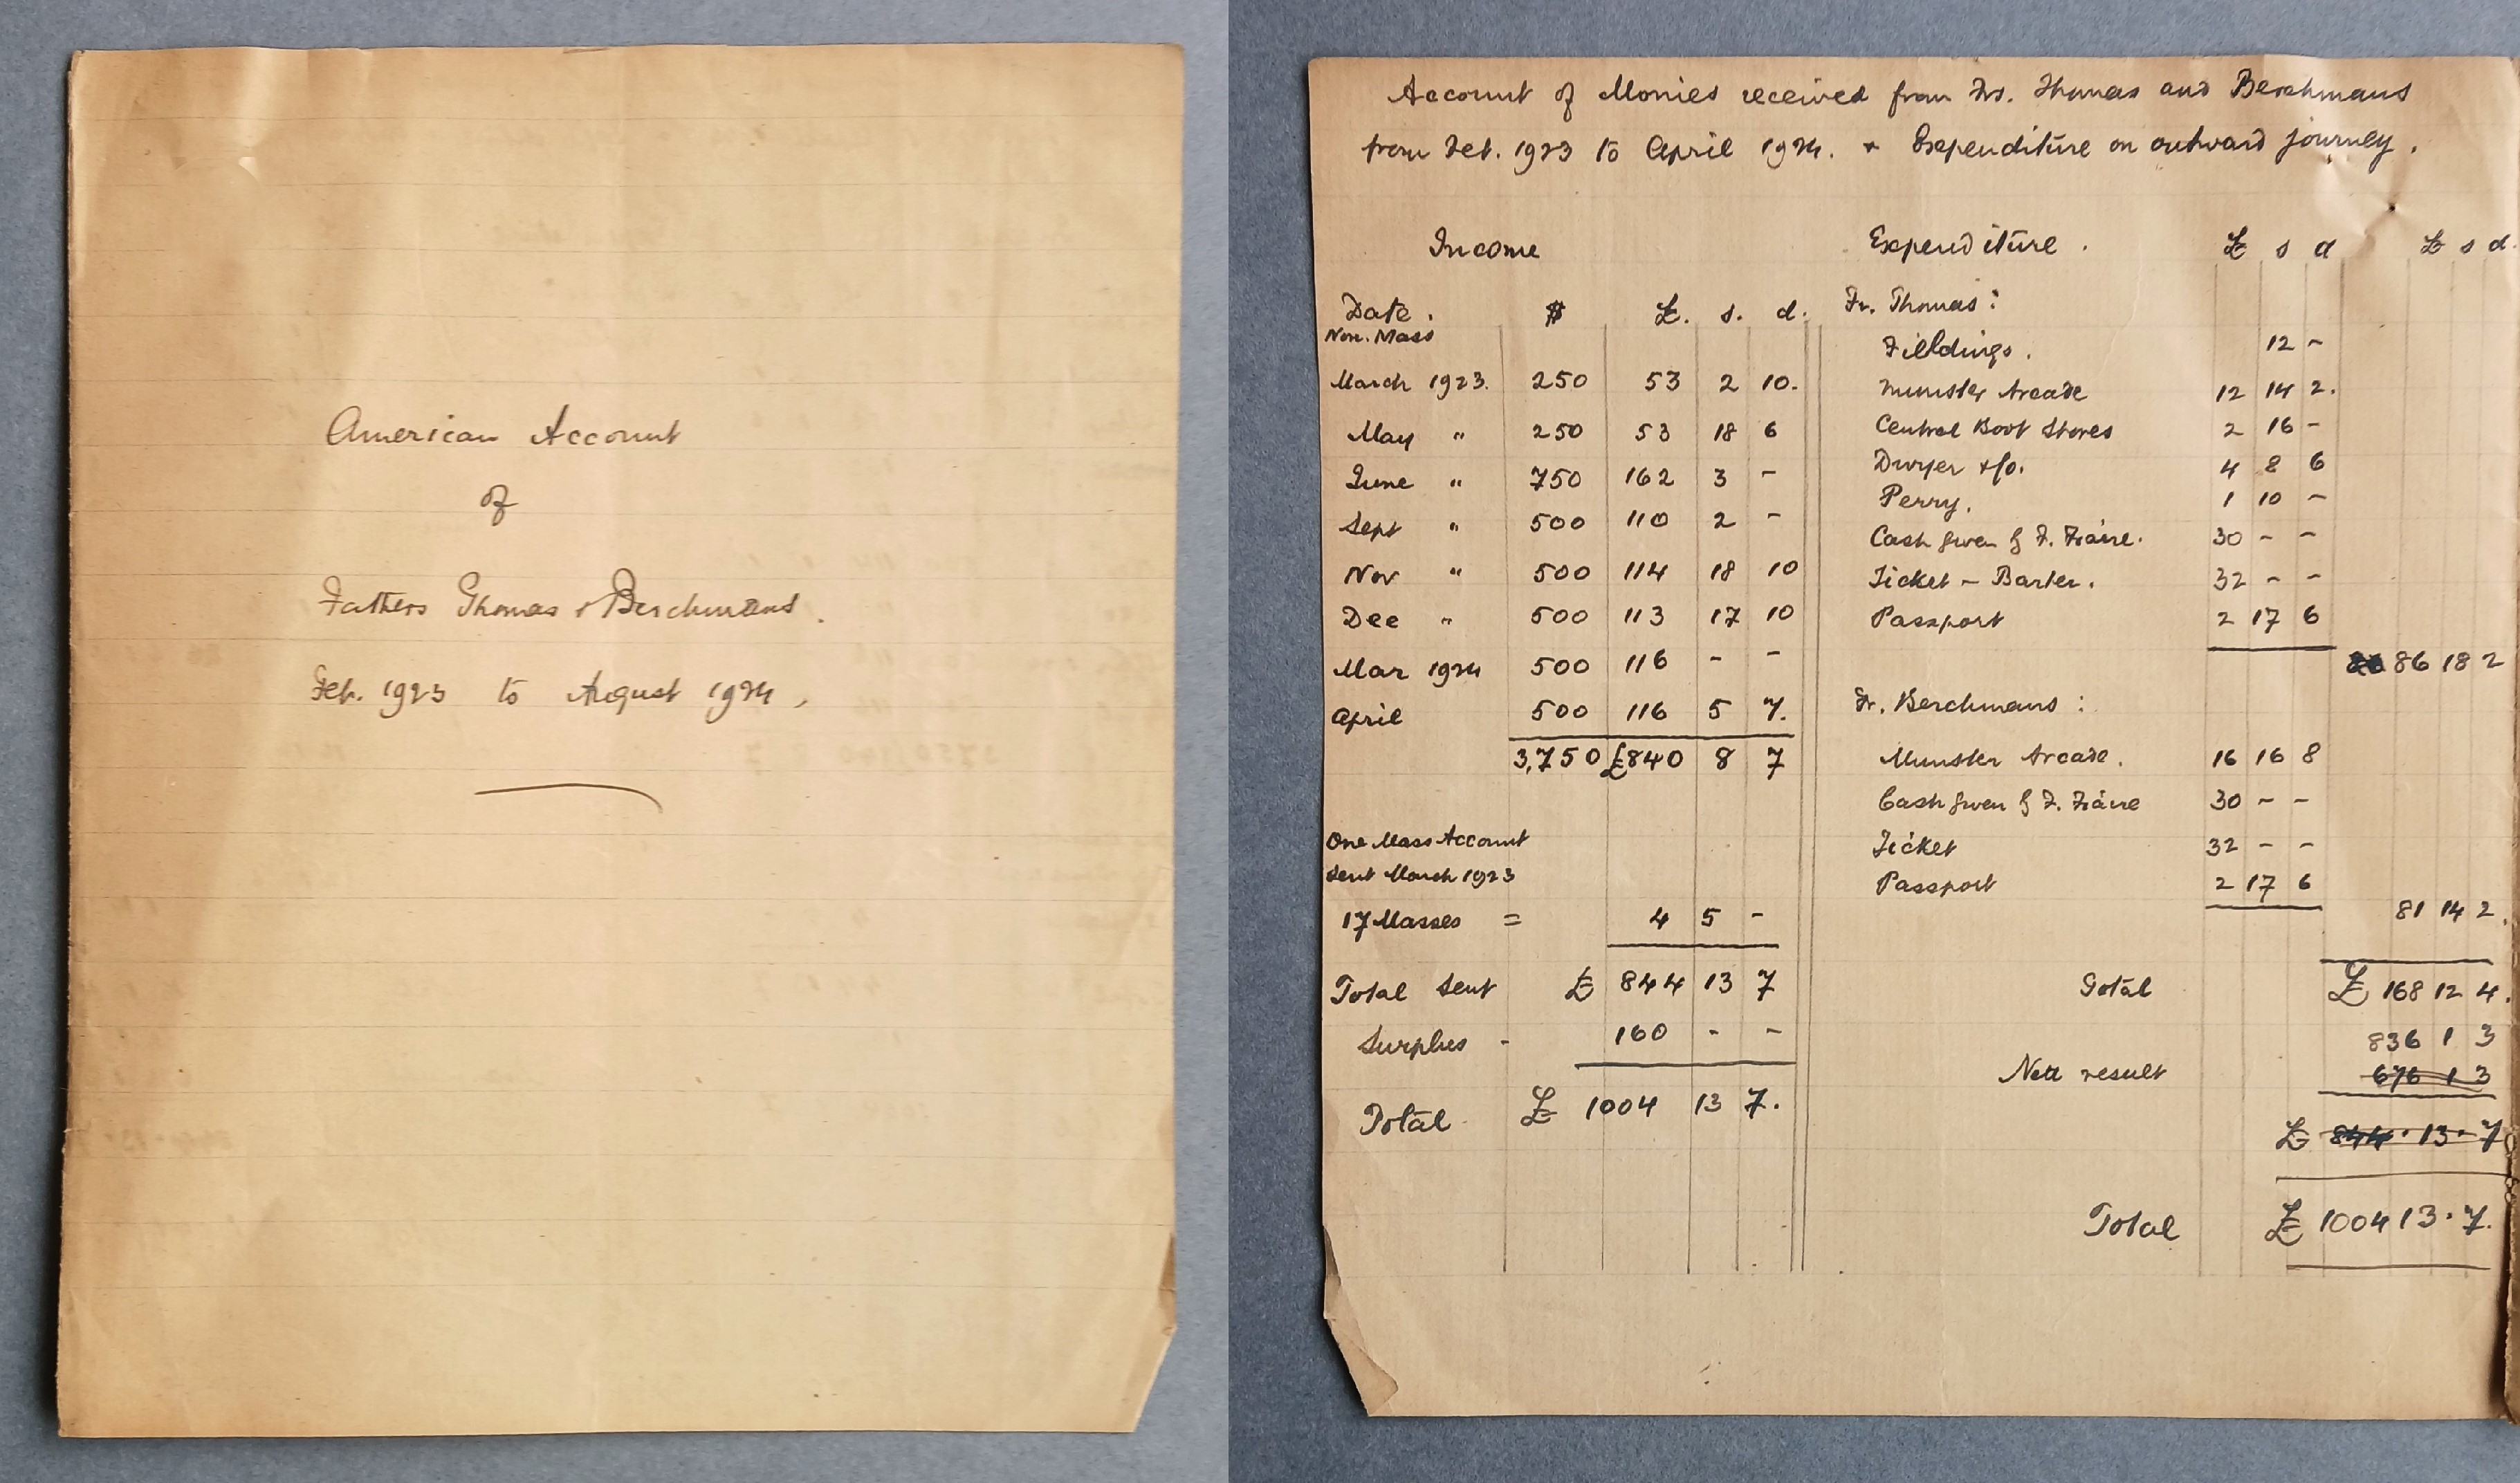 American Account
of
Fathers Thomas & Berchmans.
Feb. 1923 to August 1924.
Account of Monies received from Frs. Thomas and Berchmans
from Feb. 1923 to April 1924. + Expenditure on outward journey.
Income
Date. $ £. s. d.
Non. Mass
March 1923. 250 53 2 10.
May " 250 53 18 6
June " 750 162 3 -
Sept " 500 110 2 -
Nov " 500 114 18 10
Dec " 500 113 17 10
Mar 1924 500 116 - -
April 500 116 5 7.
3,750 £840 8 7
One Mass Account
Sent March 1923
17 Masses = 4 5 -
Total Sent £ 844 13 7
Surplus - 160 - -
Total £ 1004 13 7.
Expenditure. £ s d £ s d.
Fr. Thomas:
Fieldings. 12 -
Munster Arcade 12 14 2.
Central Boot Stores 2 16 -
Dwyer & Co. 4 8 6
Perry. 1 10 -
Cash given 30 - -
Ticket - Barter. 32 - -
Passport 2 17 6
86 18 2
Fr. Berchmans:
Munster Arcade. 16 16 8
Cash given 30 - -
Ticket 32 - -
Passport 2 17 6
81 14 2.
Total £ 168 12 4.
836 1 3
Nett result 676 1 3
£ 844. 13. 7
Total £ 1004 13. 7.